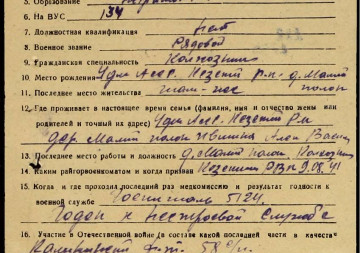 5. Образование
6. На ВУС 134
7. Должностная квалификация нет
8. Военное звание Рядовой
9. Гражданская специальность Колхозник
10. Место рождения Удм. Асср. р-н. д. Малый
11. Последнее место жительства полом
12. Где проживает в настоящее время семья (фамилия, имя и отчество жены или
родителей и точный их адрес) Удм. Асср. р-н
дер. Малый полом
13. Последнее место работы и должность д. Малый полом. Колхозник
14. Каким райгорвоенкоматом и когда призван РВК 9.08.41
15. Когда и где проходил последний раз медкомиссию и результат годности к
военной службе Госпиталь 5124.
Годен к нестроевой службе
16. Участие в Отечественной войне (в составе какой последней части в качестве